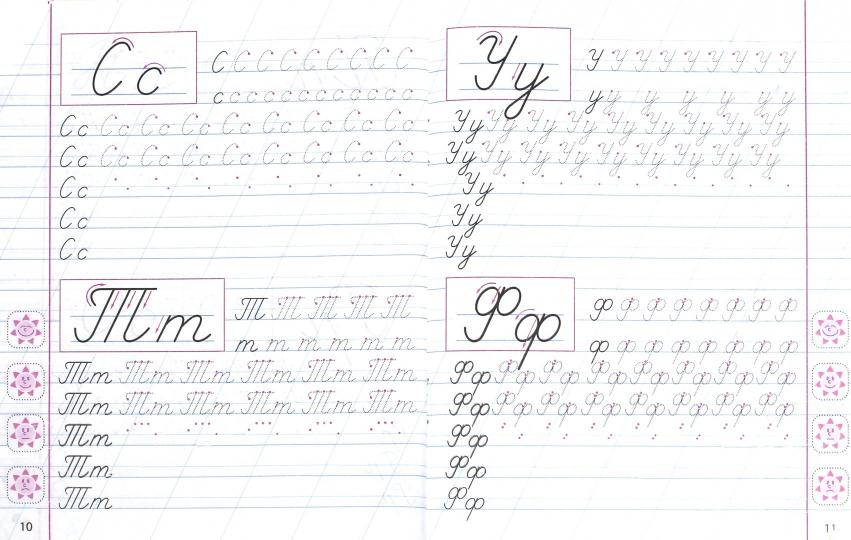 Сс
С С С С С С С С С
с с с с с с с с с с с с
Сс Сс Сс Сс Сс Сс Сс Сс Сс
Сс Сс Сс Сс Сс Сс Сс Сс Сс
Сс
Сс
Сс
Тт
Т Т Т Т Т
т т т т т т
Тт Тт Тт Тт Тт Тт
Тт Тт Тт Тт Тт Тт
Тт
Тт
Тт
10
Уу
У У У У У У У У У
у у у у у у у
Уу Уу Уу Уу Уу Уу Уу Уу Уу
Уу Уу Уу Уу Уу Уу Уу Уу Уу
Уу
Уу
Уу
Фф
Ф Ф Ф Ф Ф Ф Ф Ф
ф ф ф ф ф ф ф ф
Фф Фф Фф Фф Фф Фф Фф Фф
Фф Фф Фф Фф Фф Фф Фф Фф
Фф
Фф
Фф
11